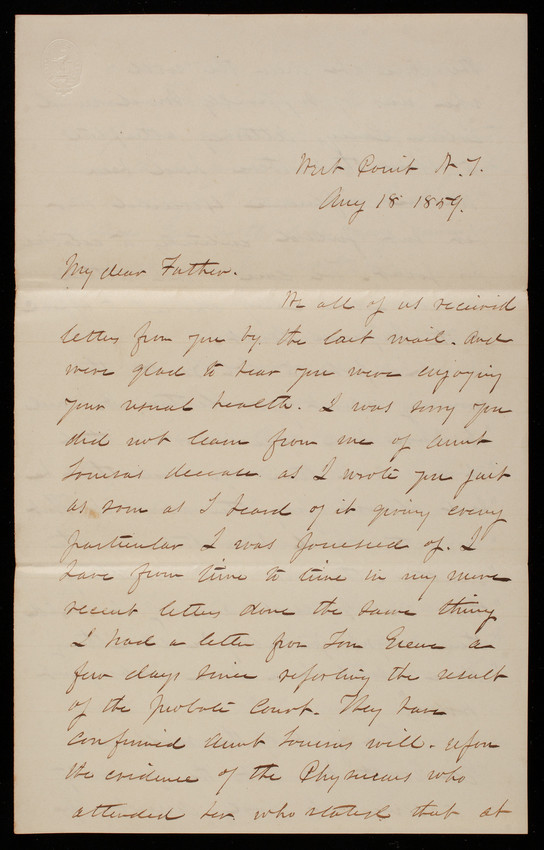 West Point N.Y.
Aug 18 1859.
My dear Father.
We all of us received
letters from you by the last mail. And
were glad to hear you were enjoying
your usual health. I was sorry you
did not learn from me of Aunt
Louisas decease as I wrote you just
as soon as I heard of it giving every
particular I was possessed of. I
have from time to time in my more
recent letters done the same thing
I had a letter from Tom Greene a
few days since reporting the result
of the Probate Court. They have
confirmed Aunt Louisas will. upon
the evidence of the Physicians who
attended her who stated that at